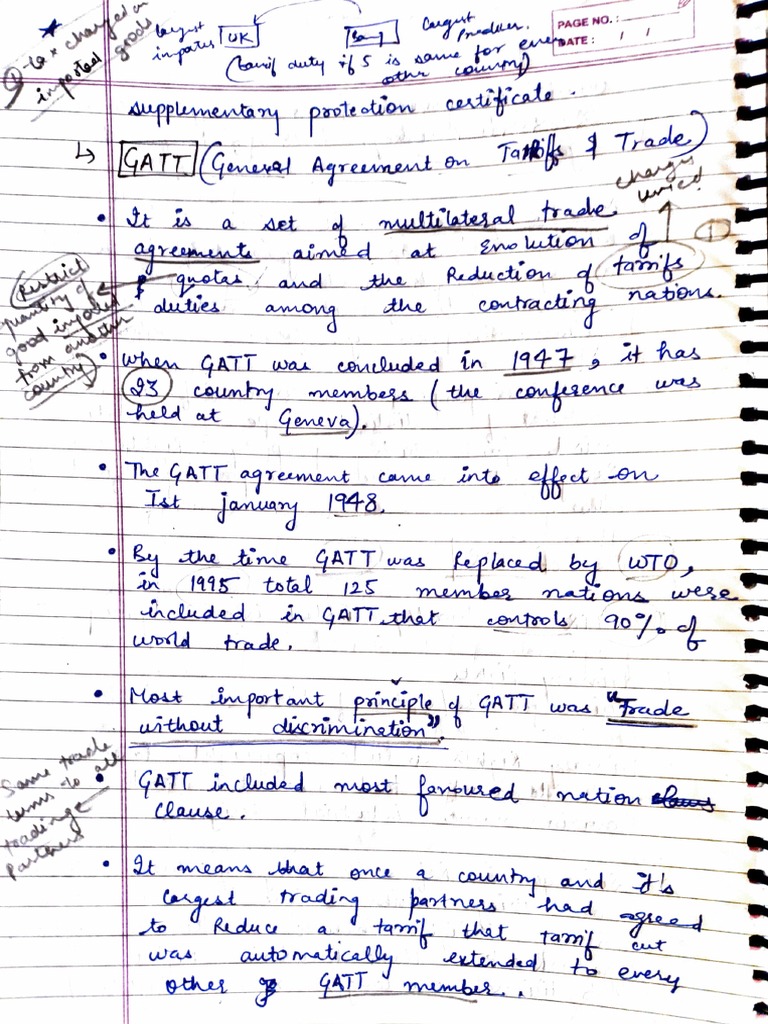 ① tax charged on
imported goods
largest
imports UK
Largest
Producer.
PAGE NO.:
DATE: / /
(tarrif duty if 5 is same for every
other country)
supplementary protection certificate.
↳ GATT (General Agreement on Tarrifs & Trade)
• It is a set of multilateral trade
agreements aimed at of ①
& quotas and the Reduction of tarrifs
duties among the contracting nations.
(Restrict
quantity of
good imported
from another
country)
• when GATT was concluded in 1947, it has
23 country members (the conference was
held at Geneva).
• The GATT agreement came into effect on
Ist january 1948.
• By the time GATT was Replaced by WTO,
in 1995 total 125 member nations were
included in GATT that controls 90% of
world trade.
• Most important principle of GATT was "Trade
without discrimination".
Same trade
terms to all
trading
Partners
• GATT included most favoured nation
clause.
• It means that once a country and it's
largest trading partners had agreed
to Reduce a tarrif that tarrif cut
was automatically extended to every
other GATT member.